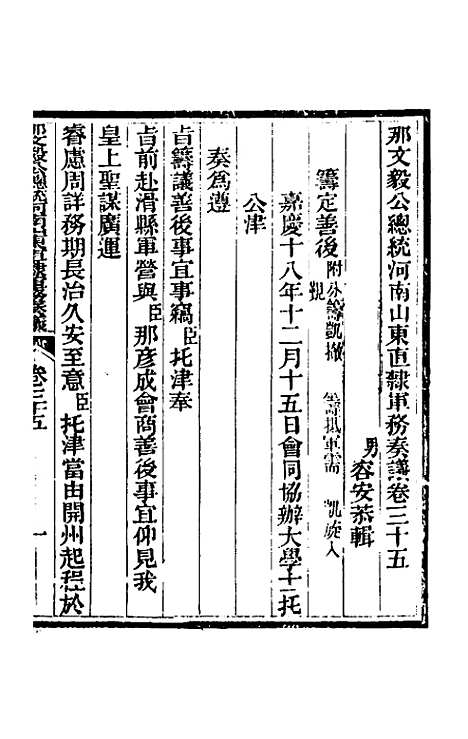 那文毅公總統河南山東直隸軍務奏議卷三十五
男容安恭輯
籌定善後 附分籌凱撤 籌撥軍需 凱旋入覲
嘉慶十八年十二月十五日會同協辦大學士托
公津
奏爲遵
旨籌議善後事宜事竊臣托津奉
旨前赴滑縣軍營與臣那彥成會商善後事宜仰見我
皇上聖謀廣運
睿慮周詳務期長治久安至意臣托津當由開州起程於
卷三十五 一